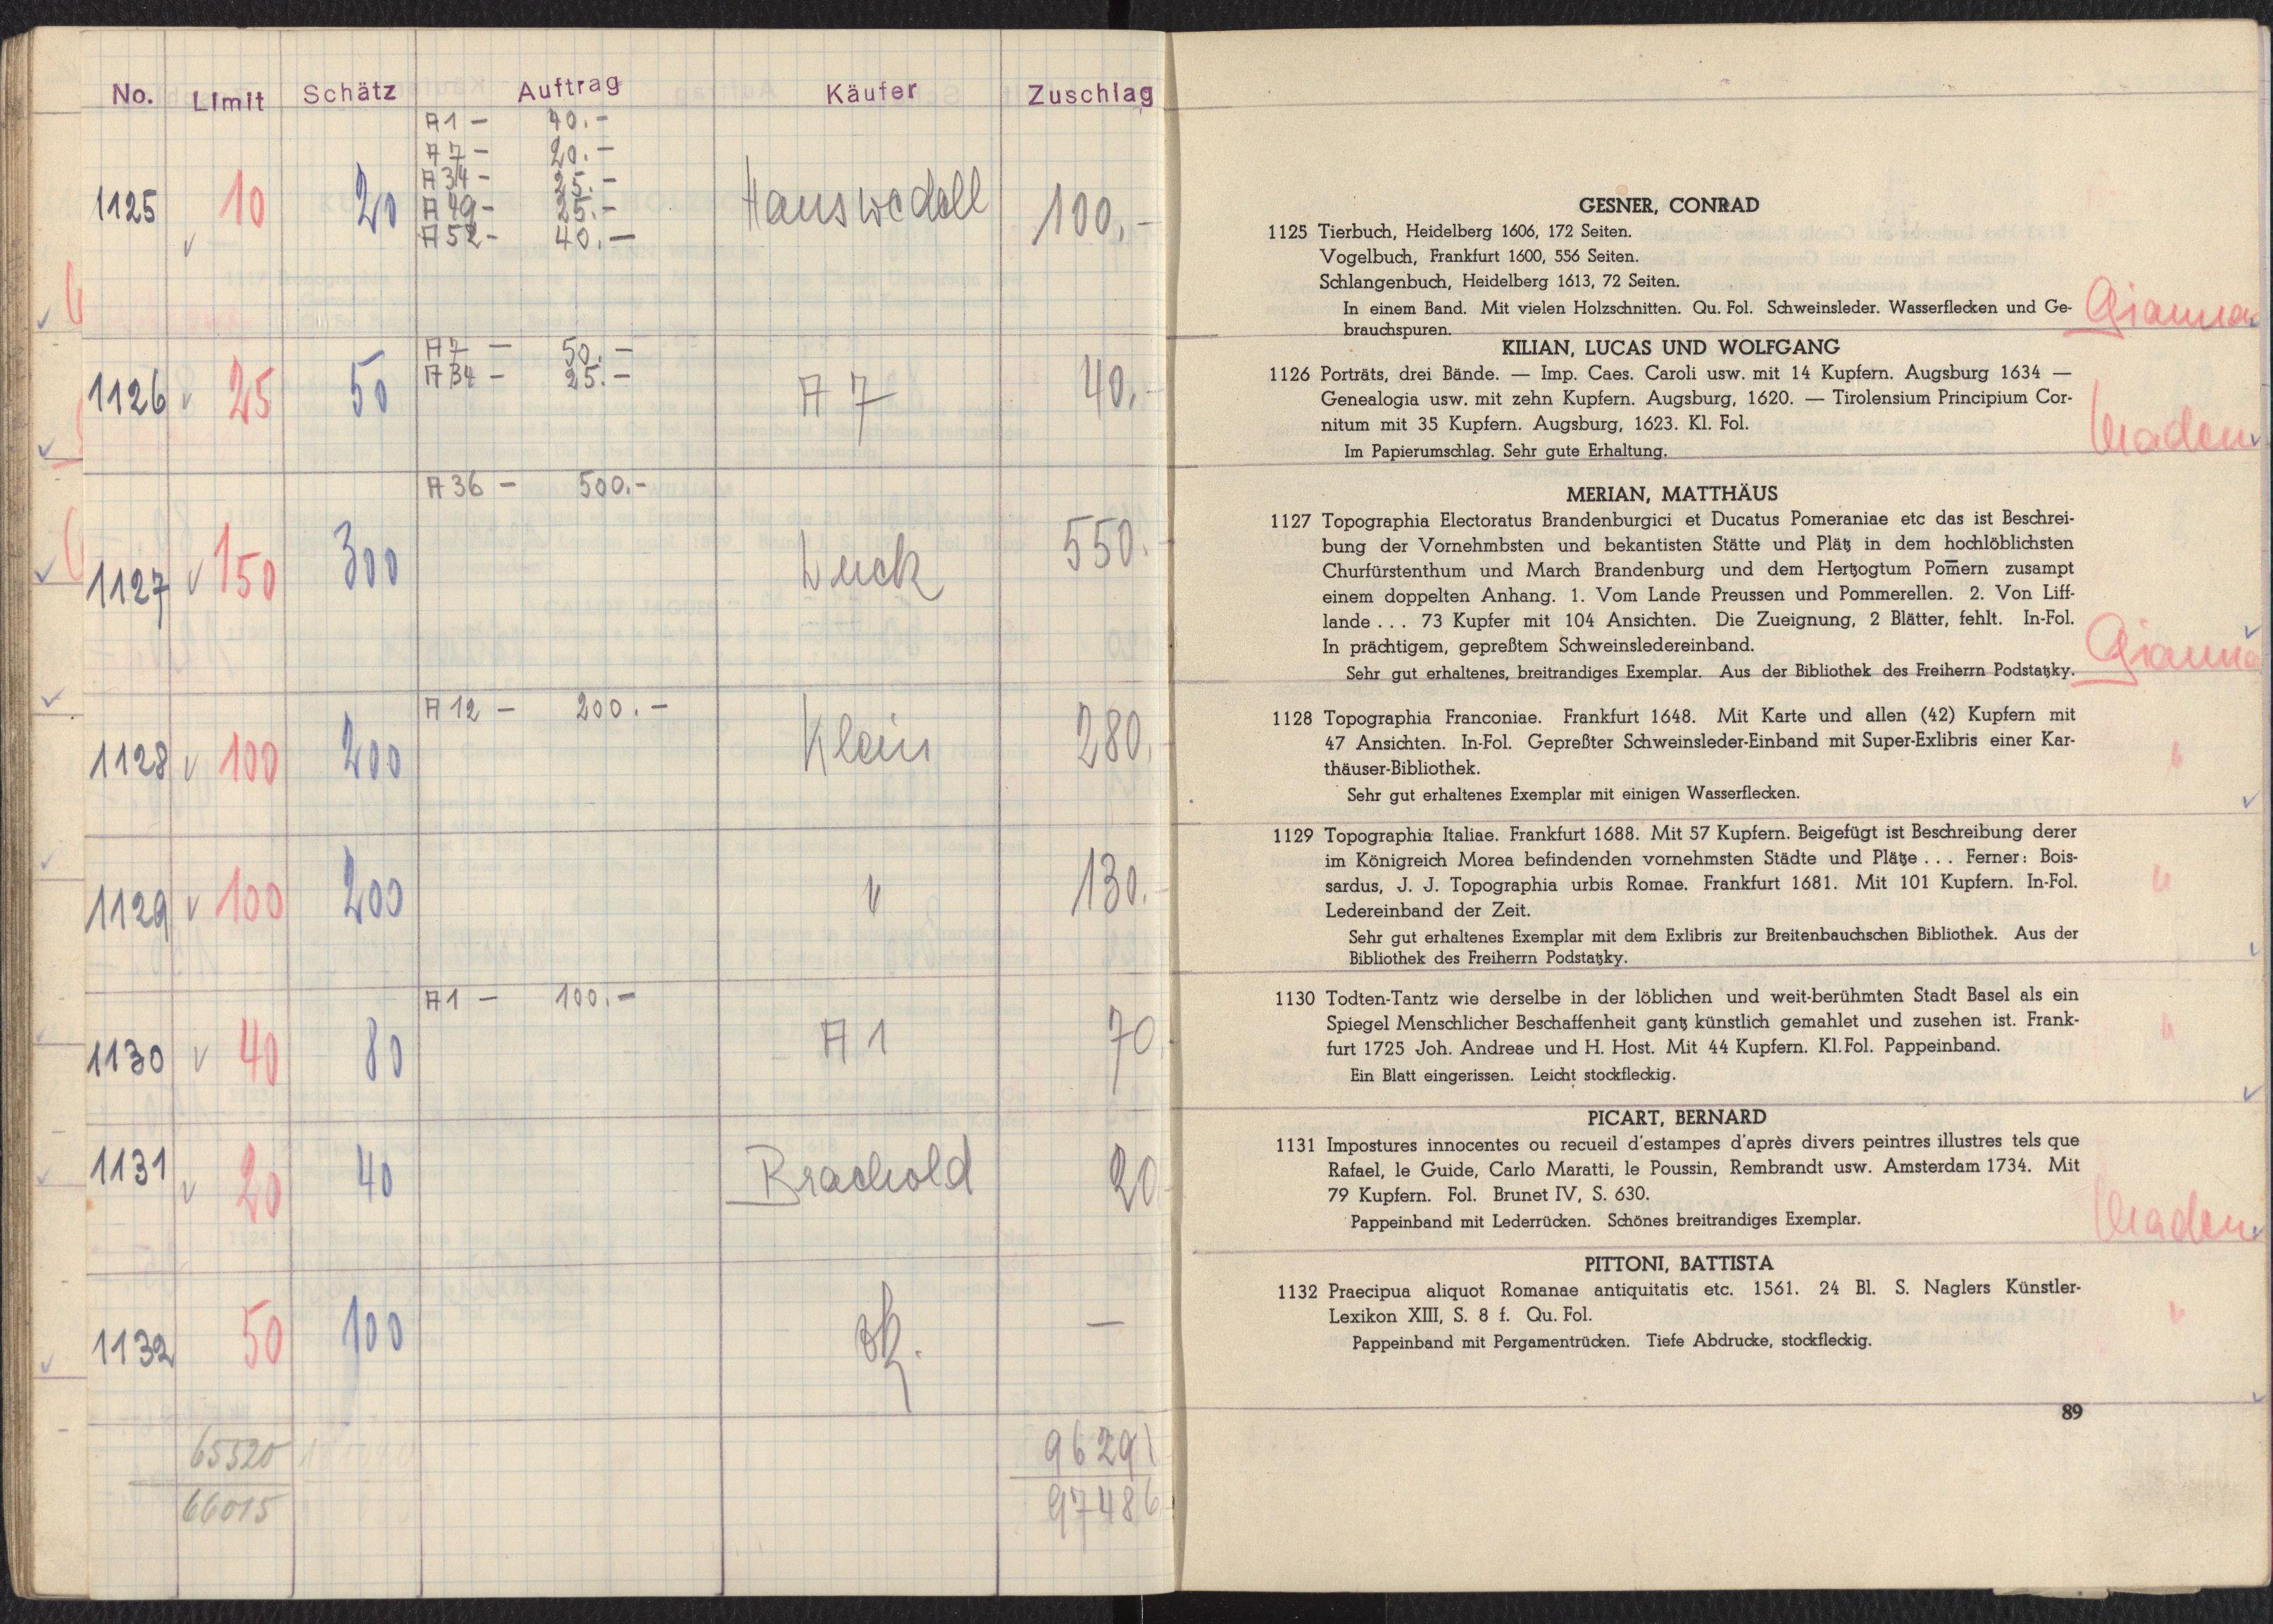 No. Limit Schätz Auftrag Käufer Zuschlag
A1 - 40.-
A7 - 20.-
A34 - 25.-
1125 10 20 A49 - 25.- Hanswedell 100,-
A52 - 40.-
A7 - 50.-
A34 - 25.-
1126 25 50 A7 40,-
A36 - 500.-
1127 150 300 550.
A12 - 200.-
1128 100 200 Klein 280,
1129 100 200 " 130.-
A1 - 100.-
1130 40 80 A1 70
1131 20 40 Brachold 20
1132 50 100 —
65520 96291
66015 97486
GESNER, CONRAD
1125 Tierbuch, Heidelberg 1606, 172 Seiten.
Vogelbuch, Frankfurt 1600, 556 Seiten.
Schlangenbuch, Heidelberg 1613, 72 Seiten.
In einem Band. Mit vielen Holzschnitten. Qu. Fol. Schweinsleder. Wasserflecken und Ge-
brauchspuren.
KILIAN, LUCAS UND WOLFGANG
1126 Porträts, drei Bände. — Imp. Caes. Caroli usw. mit 14 Kupfern. Augsburg 1634 —
Genealogia usw. mit zehn Kupfern. Augsburg, 1620. — Tirolensium Principium Cor-
nitum mit 35 Kupfern. Augsburg, 1623. Kl. Fol.
Im Papierumschlag. Sehr gute Erhaltung.
MERIAN, MATTHÄUS
1127 Topographia Electoratus Brandenburgici et Ducatus Pomeraniae etc das ist Beschrei-
bung der Vornehmbsten und bekantisten Stätte und Plätz in dem hochlöblichsten
Churfürstenthum und March Brandenburg und dem Hertzogtum Pom̄ern zusampt
einem doppelten Anhang. 1. Vom Lande Preussen und Pommerellen. 2. Von Liff-
lande . . . 73 Kupfer mit 104 Ansichten. Die Zueignung, 2 Blätter, fehlt. In-Fol.
In prächtigem, gepreßtem Schweinsledereinband.
Sehr gut erhaltenes, breitrandiges Exemplar. Aus der Bibliothek des Freiherrn Podstatzky.
1128 Topographia Franconiae. Frankfurt 1648. Mit Karte und allen (42) Kupfern mit
47 Ansichten. In-Fol. Gepreßter Schweinsleder-Einband mit Super-Exlibris einer Kar-
thäuser-Bibliothek.
Sehr gut erhaltenes Exemplar mit einigen Wasserflecken.
1129 Topographia Italiae. Frankfurt 1688. Mit 57 Kupfern. Beigefügt ist Beschreibung derer
im Königreich Morea befindenden vornehmsten Städte und Plätze . . . Ferner: Bois-
sardus, J. J. Topographia urbis Romae. Frankfurt 1681. Mit 101 Kupfern. In-Fol.
Ledereinband der Zeit.
Sehr gut erhaltenes Exemplar mit dem Exlibris zur Breitenbauchschen Bibliothek. Aus der
Bibliothek des Freiherrn Podstatzky.
1130 Todten-Tantz wie derselbe in der löblichen und weit-berühmten Stadt Basel als ein
Spiegel Menschlicher Beschaffenheit gantz künstlich gemahlet und zusehen ist. Frank-
furt 1725 Joh. Andreae und H. Host. Mit 44 Kupfern. Kl. Fol. Pappeinband.
Ein Blatt eingerissen. Leicht stockfleckig.
PICART, BERNARD
1131 Impostures innocentes ou recueil d'estampes d'après divers peintres illustres tels que
Rafael, le Guide, Carlo Maratti, le Poussin, Rembrandt usw. Amsterdam 1734. Mit
79 Kupfern. Fol. Brunet IV, S. 630.
Pappeinband mit Lederrücken. Schönes breitrandiges Exemplar.
PITTONI, BATTISTA
1132 Praecipua aliquot Romanae antiquitatis etc. 1561. 24 Bl. S. Naglers Künstler-
Lexikon XIII, S. 8 f. Qu. Fol.
Pappeinband mit Pergamentrücken. Tiefe Abdrucke, stockfleckig.
89